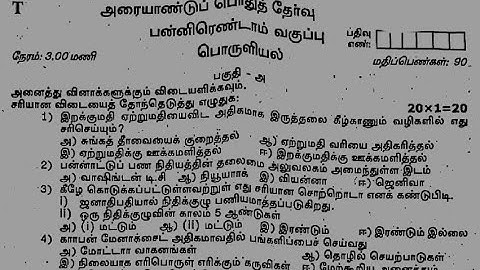 T
அரையாண்டுப் பொதுத் தேர்வு
பன்னிரெண்டாம் வகுப்பு
பதிவு எண்:
பொருளியல்
நேரம்: 3.00 மணி
மதிப்பெண்கள்: 90
பகுதி - அ
அனைத்து வினாக்களுக்கும் விடையளிக்கவும்.
சரியான விடையைத் தேர்ந்தெடுத்து எழுதுக:
20×1=20
1) இறக்குமதி ஏற்றுமதியைவிட அதிகமாக இருத்தலை கீழ்காணும் வழிகளில் எது
சரிசெய்யும்?
அ) சுங்கத் தீர்வையைக் குறைத்தல் ஆ) ஏற்றுமதி வரியை அதிகரித்தல்
இ) ஏற்றுமதிக்கு ஊக்கமளித்தல் ஈ) இறக்குமதிக்கு ஊக்கமளித்தல்
2) பன்னாட்டுப் பண நிதியத்தின் தலைமை அலுவலகம் அமைந்துள்ள இடம்
அ) வாஷிங்டன் டி.சி ஆ) நியூயார்க் இ) வியன்னா ஈ) ஜெனிவா
3) கீழே கொடுக்கப்பட்டுள்ளவற்றுள் எது சரியான சொற்றொடர் எனக் கண்டுபிடி.
I) ஜனாதிபதியால் நிதிக்குழு பணியமர்த்தப்படுகிறது.
II) ஒரு நிதிக்குழுவின் காலம் 5 ஆண்டுகள்
அ) (i) மட்டும் ஆ) (ii) மட்டும் இ) இரண்டும் ஈ) இரண்டும் இல்லை
4) கார்பன் மேனாக்சைட் அதிகமாவதில் பங்களிப்பைச் செய்வது
அ) மோட்டார் வாகனங்கள் ஆ) தொழில் செயற்பாடுகள்
இ) நிலையாக எரிபொருள் எரிக்கும் கருவிகள் ஈ) மேற்கூறிய அனைத்தும்